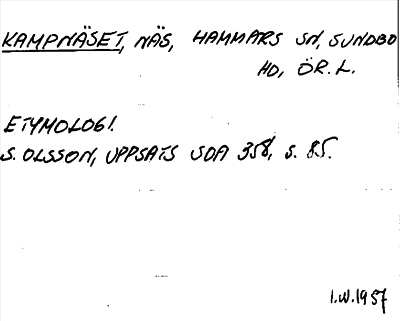 KAMPNÄSET, NÄS, HAMMARS SN, SUNDBO
HD, ÖR. L.
ETYMOLOGI.
S. OLSSON, UPPSATS SOA 358, S. 85.
I.W.1957